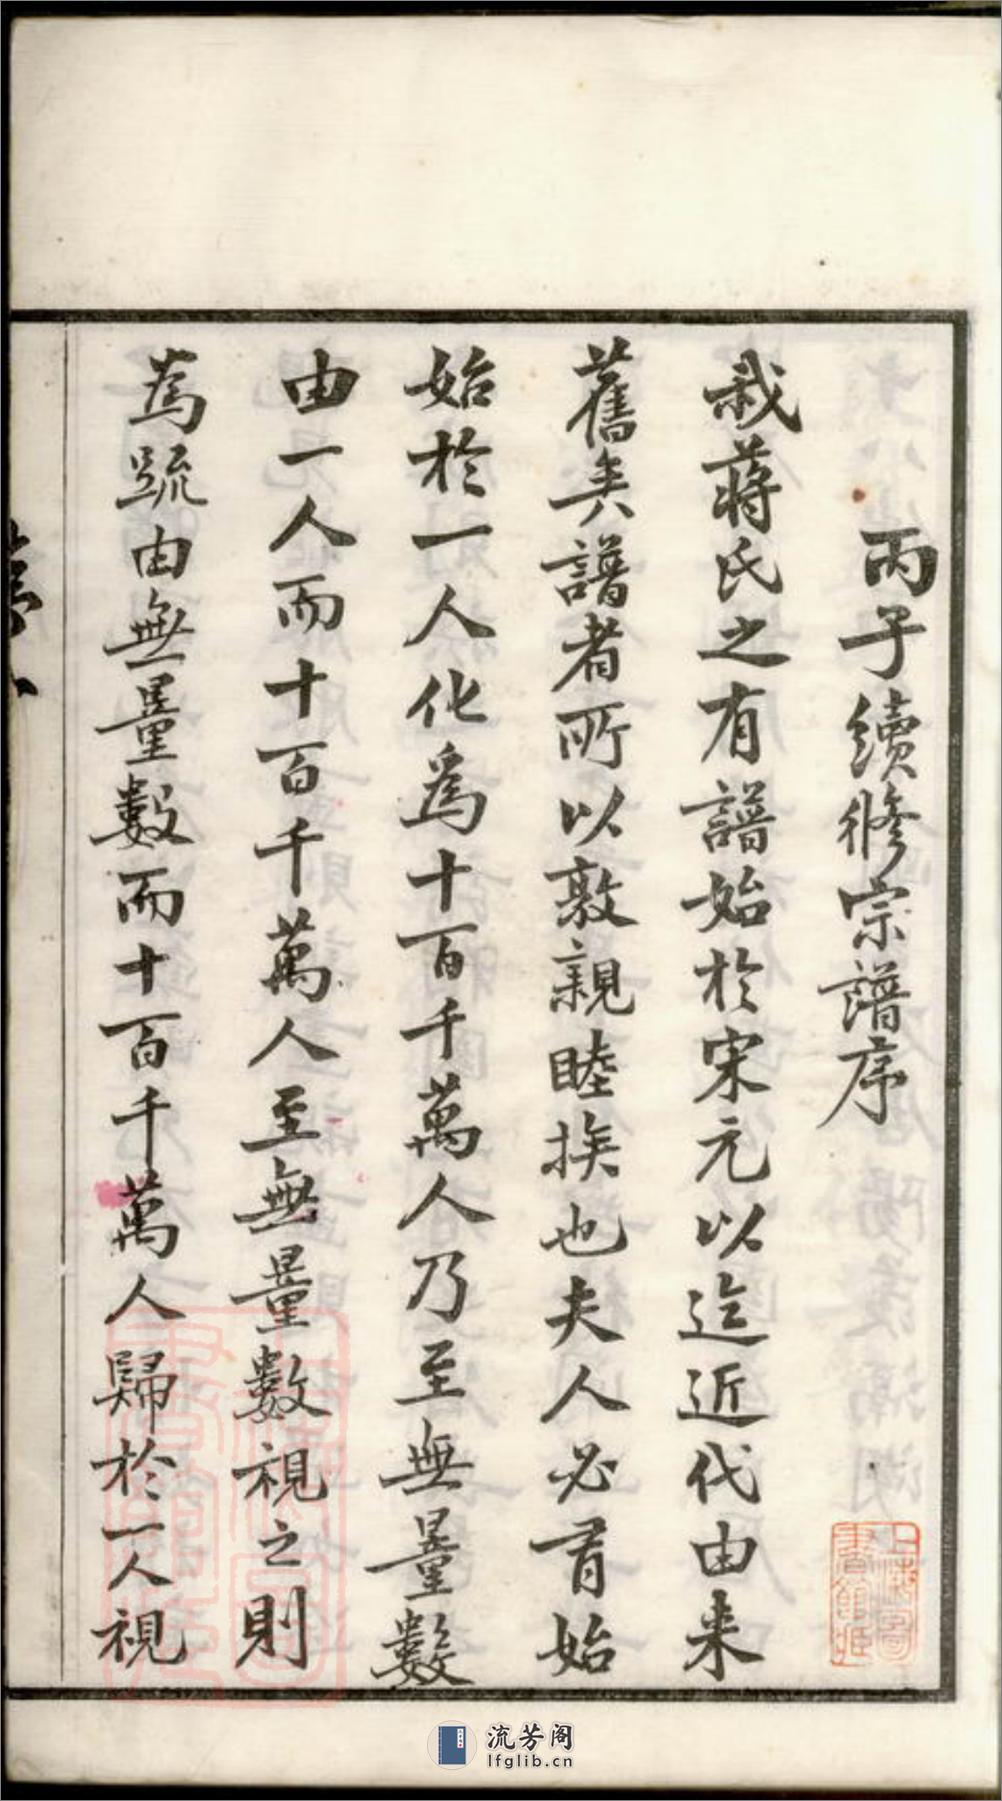 丙子續修宗譜序
我蔣氏之有譜始於宋元以迄近代由来
舊矣譜者所以敦親睦族也夫人必有始
始於一人化為十百千萬人乃至無量數
由一人而十百千萬人至無量數視之則
為疏由無量數而十百千萬人歸於一人視
上海圖書館藏
流芳阁
lfglib.cn